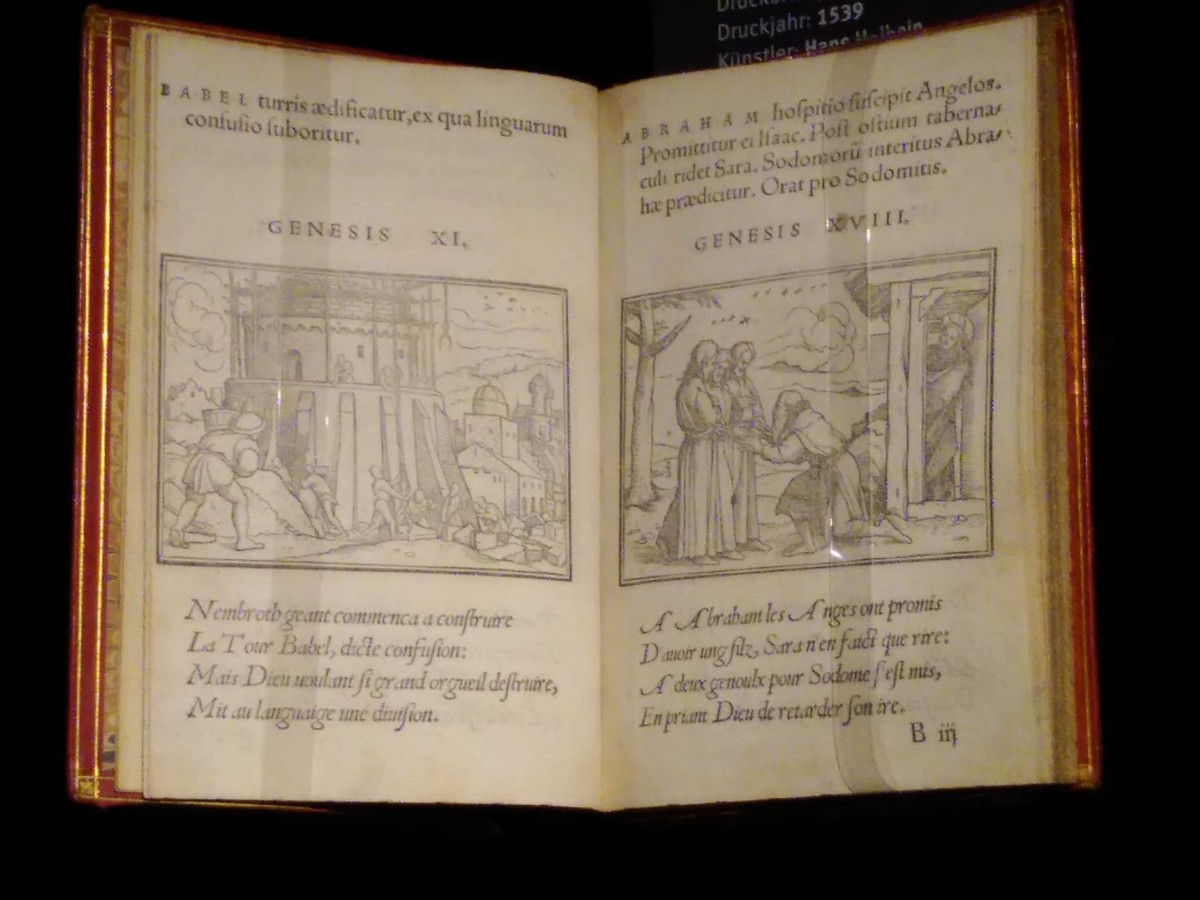 Druckjahr: 1539
Künstler: Hans Holbein
BABEL turris ædificatur, ex qua linguarum
confusio suboritur.
GENESIS XI.
Nembroth geant commenca a construire
La Tour Babel, dicte confusion:
Mais Dieu uoulant si grand orgueil destruire,
Mit au languaige une diuision.
ABRAHAM hospitio suscipit Angelos.
Promittitur ei Isaac. Post ostium taberna/
culi ridet Sara. Sodomorū interitus Abra/
hæ prædicitur. Orat pro Sodomitis.
GENESIS XVIII.
A Abraham les Anges ont promis
D'auoir ung filz, Sara n'en faict que rire:
A deux genoulx pour Sodome s'est mis,
En priant Dieu de retarder son ire.
B iij